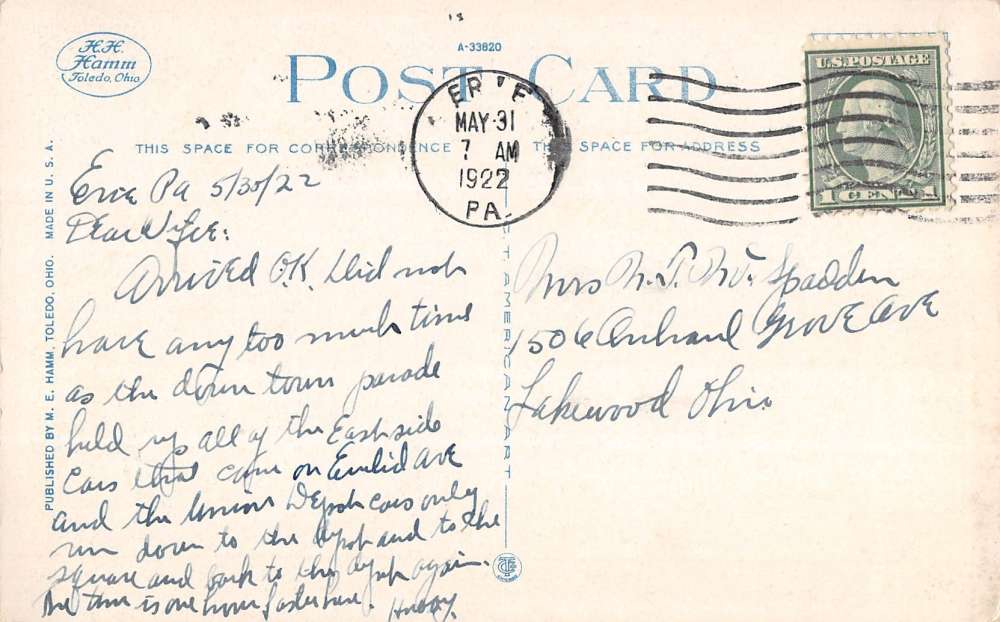 H.H.
Hamm
Toledo, Ohio
A-33820
POST CARD
U.S. POSTAGE
1 CENT 1
ER E
MAY 31
7 AM
1922
PA.
THIS SPACE FOR CORRESPONDENCE
THIS SPACE FOR ADDRESS
PUBLISHED BY M. E. HAMM, TOLEDO, OHIO. MADE IN U. S. A.
T AMERICAN ART
Erie Pa 5/30/22
Dear Wife:
Arrived O.K. Did not
have any too much time
as the down town parade
held up all of the East side
Cars that come on Euclid ave
and the Union Depot cars only
run down to the depot and to the
square and back to the depot again.
The time is one hour faster here. Hubby.
Mrs N.T. Mc Spadden
1506 Orchard Grove Ave
Lakewood Ohio